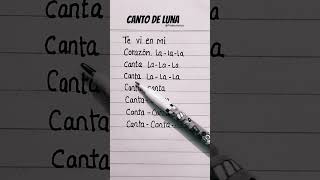 CANTO DE LUNA
Te vi en mi
Corazón La-La-La
Canta La-La-La
Canta La-La-La
Canta
Canta-
Canta-Canta
Canta-Canta-
Canta
Canta
Canta
Canta
Canta